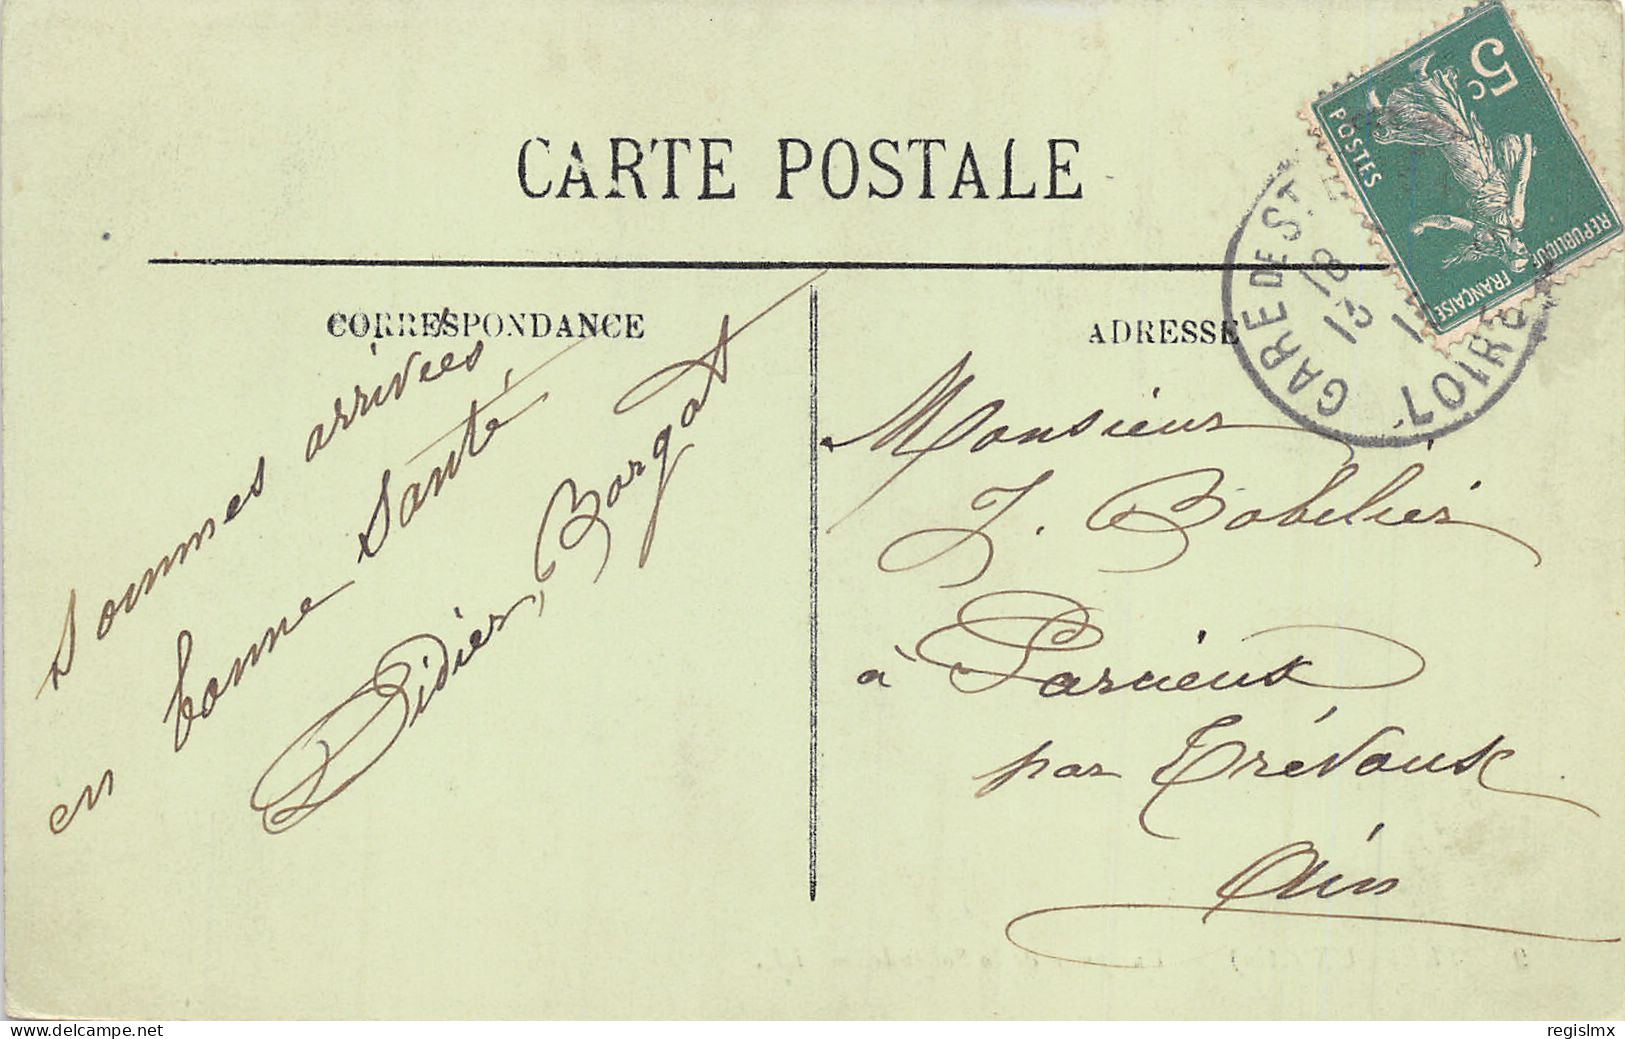 CARTE POSTALE
CORRESPONDANCE
Sommes arrivées
en bonne Santé
Didier, Borgat
ADRESSE
Monsieur
J. Bobelier
à Parcieux
par Trévoux
Ain
5c
POSTES
REPUBLIQUE FRANÇAISE
GARE DE ST
LOIRE
18
13
www.delcampe.net
regislmx